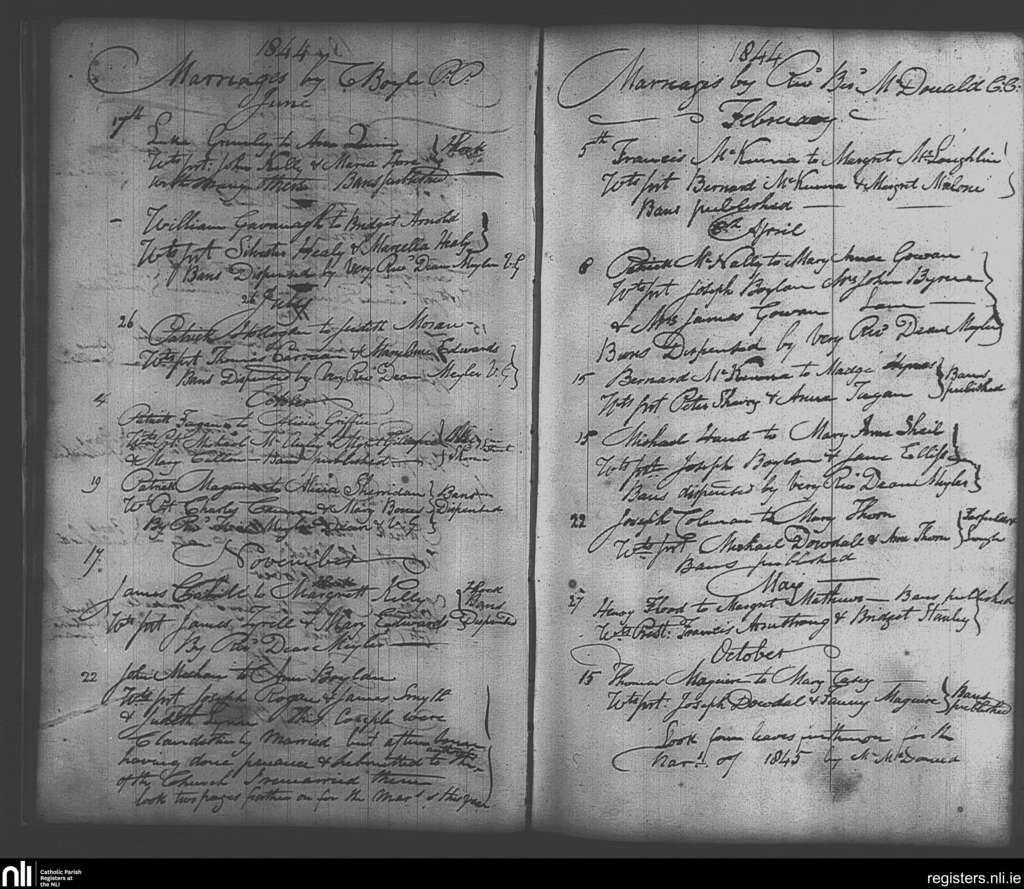 1844
Marriages by C Boyle P.P.
June
17th Luke to Ann Quinn
Wts prt: John Kelly & Maria
with many others Bans published
William Cavanagh to Bridget Arnold
Wts prt Silvester Healy & Marcella Healy
Bans Dispensed by Very Revd Dean Meyler V.G
July
26 Patrick to Judith Moran
Wts prt Thomas & Mary Anne Edwards
Bans Dispensed by Very Revd Dean Meyler V.G
October
4 Patrick to Alicia Griffin
Wts Prt Michael &
& Mary Bans published
19 Patrick Maguire to Alicia Sherridan Bans
Wts Prt Charly & Mary Dispensed
By Revd Meyler Dean & V.G
17 November
James to Margrett Kelly
Wts prt James Tyrell & Mary Edwards Bans Dispensed
By Revd Dean Meyler
22 John Meehan to Boylan
Wts prt Joseph Rogan & James Smyth
& Judith This Couple were
Clandestinly Married but after
having done penance & submitted to the
of the Church I remarried them
look two pages further on for the Mars of this year
1844
Marriages by Revd Bd McDonald C.C:
February
5th Francis McKenna to Margret McLoughlin
Wts prt Bernard McKenna & Margret Malone
Bans published
April
8 Patrick McNally to Mary Anne Gowan
Wts prt Joseph Boylan Mrs John Byrne
& Mrs James Gowan
Bans Dispensed by Very Revd Dean Meyler
15 Bernard McKenna to Madge Bans
Wts prt Peter & Anna published
15 Michael to Mary Anne Sheil
Wts prt Joseph Boylan & Jane Ellis
Bans dispensed by very Revd Dean Meyler
22 Joseph Coleman to Mary Thorn
Wts prt Michael Dowdall & Ann Thorn
Bans published
May
27 Henry Flood to Margret Mathews Bans published
Wts Prest: Francis Armstrong & Bridget Stanley
October
15 Thomas Maguire to Mary Casey
Wts prt: Joseph Dowdal & Fanny Maguire Bans published
Look four leaves further on for the
Mars. of 1845 by Mr McDonald
nli
Catholic Parish
Registers at
the NLI
registers.nli.ie